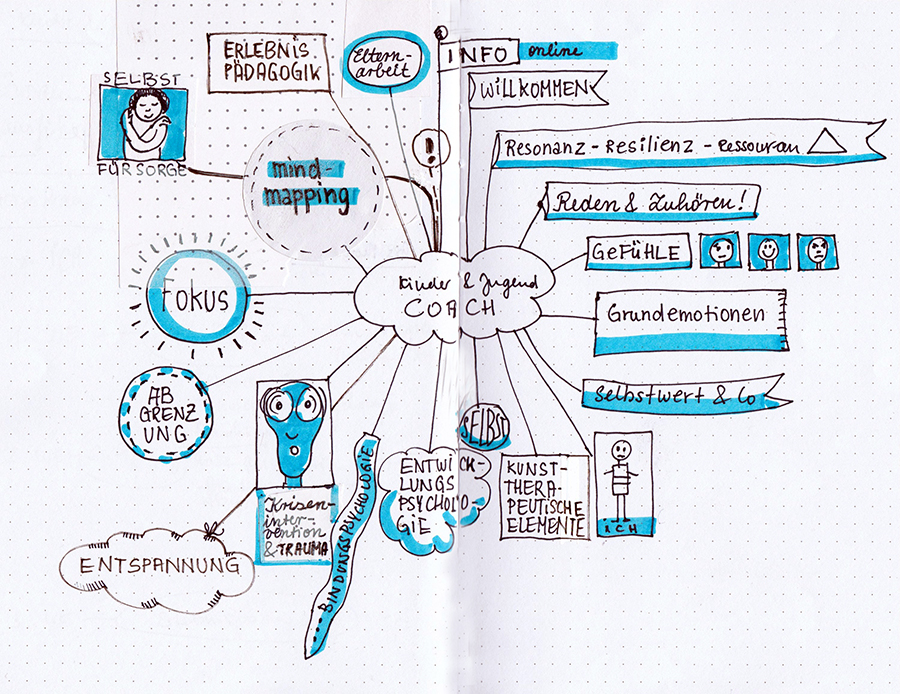 ERLEBNIS
PÄDAGOGIK
Eltern-
arbeit
INFO online
WILLKOMMEN
SELBST
FÜRSORGE
mind-
mapping
!
Resonanz - Resilienz - Ressourcen
Reden & Zuhören!
GEFÜHLE
Kinder & Jugend
COACH
Fokus
Grundemotionen
Selbstwert & Co
AB
GRENZ
UNG
SELBST
ENTWICK-
LUNGS
PSYCHOLO-
GIE
KUNST-
THERA-
PEUTISCHE
ELEMENTE
ICH
BINDUNGSPSYCHOLOGIE
Krisen-
inter-
vention
& TRAUMA
ENTSPANNUNG